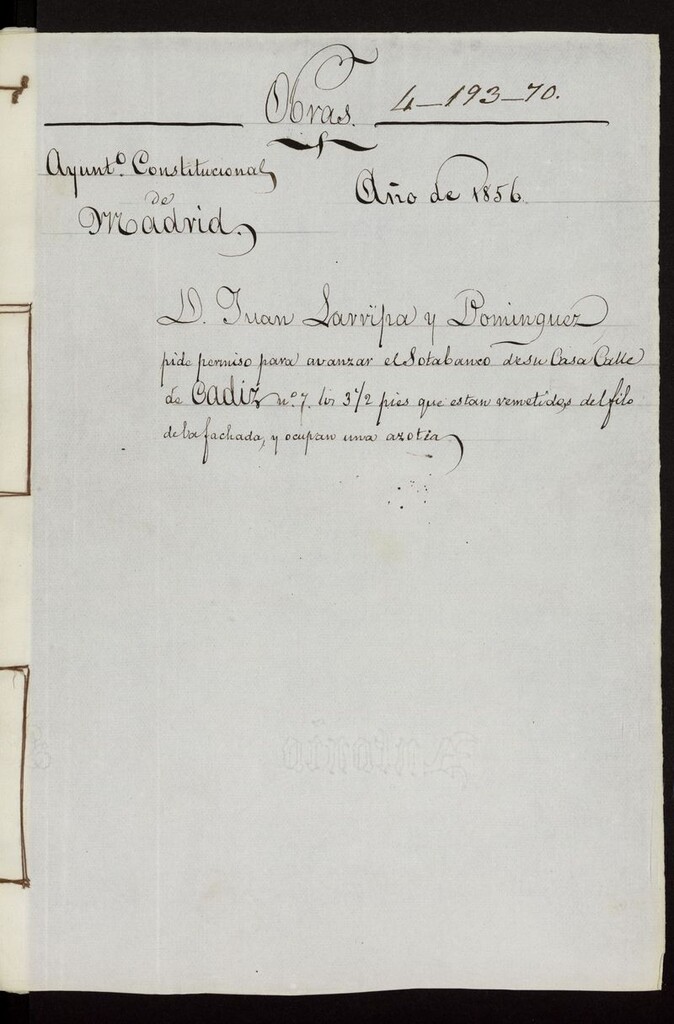 Obras. 4-193-70.
Ayunt.º Constitucional
de
Madrid.
Año de 1856.
D. Juan Larripa y Dominguez
pide permiso para avanzar el Sotabanco de su Casa Calle
de Cadiz nº. 7. los 3 1/2 pies que estan remetidos del filo
de la fachada, y ocupan una azotia.
Antonio